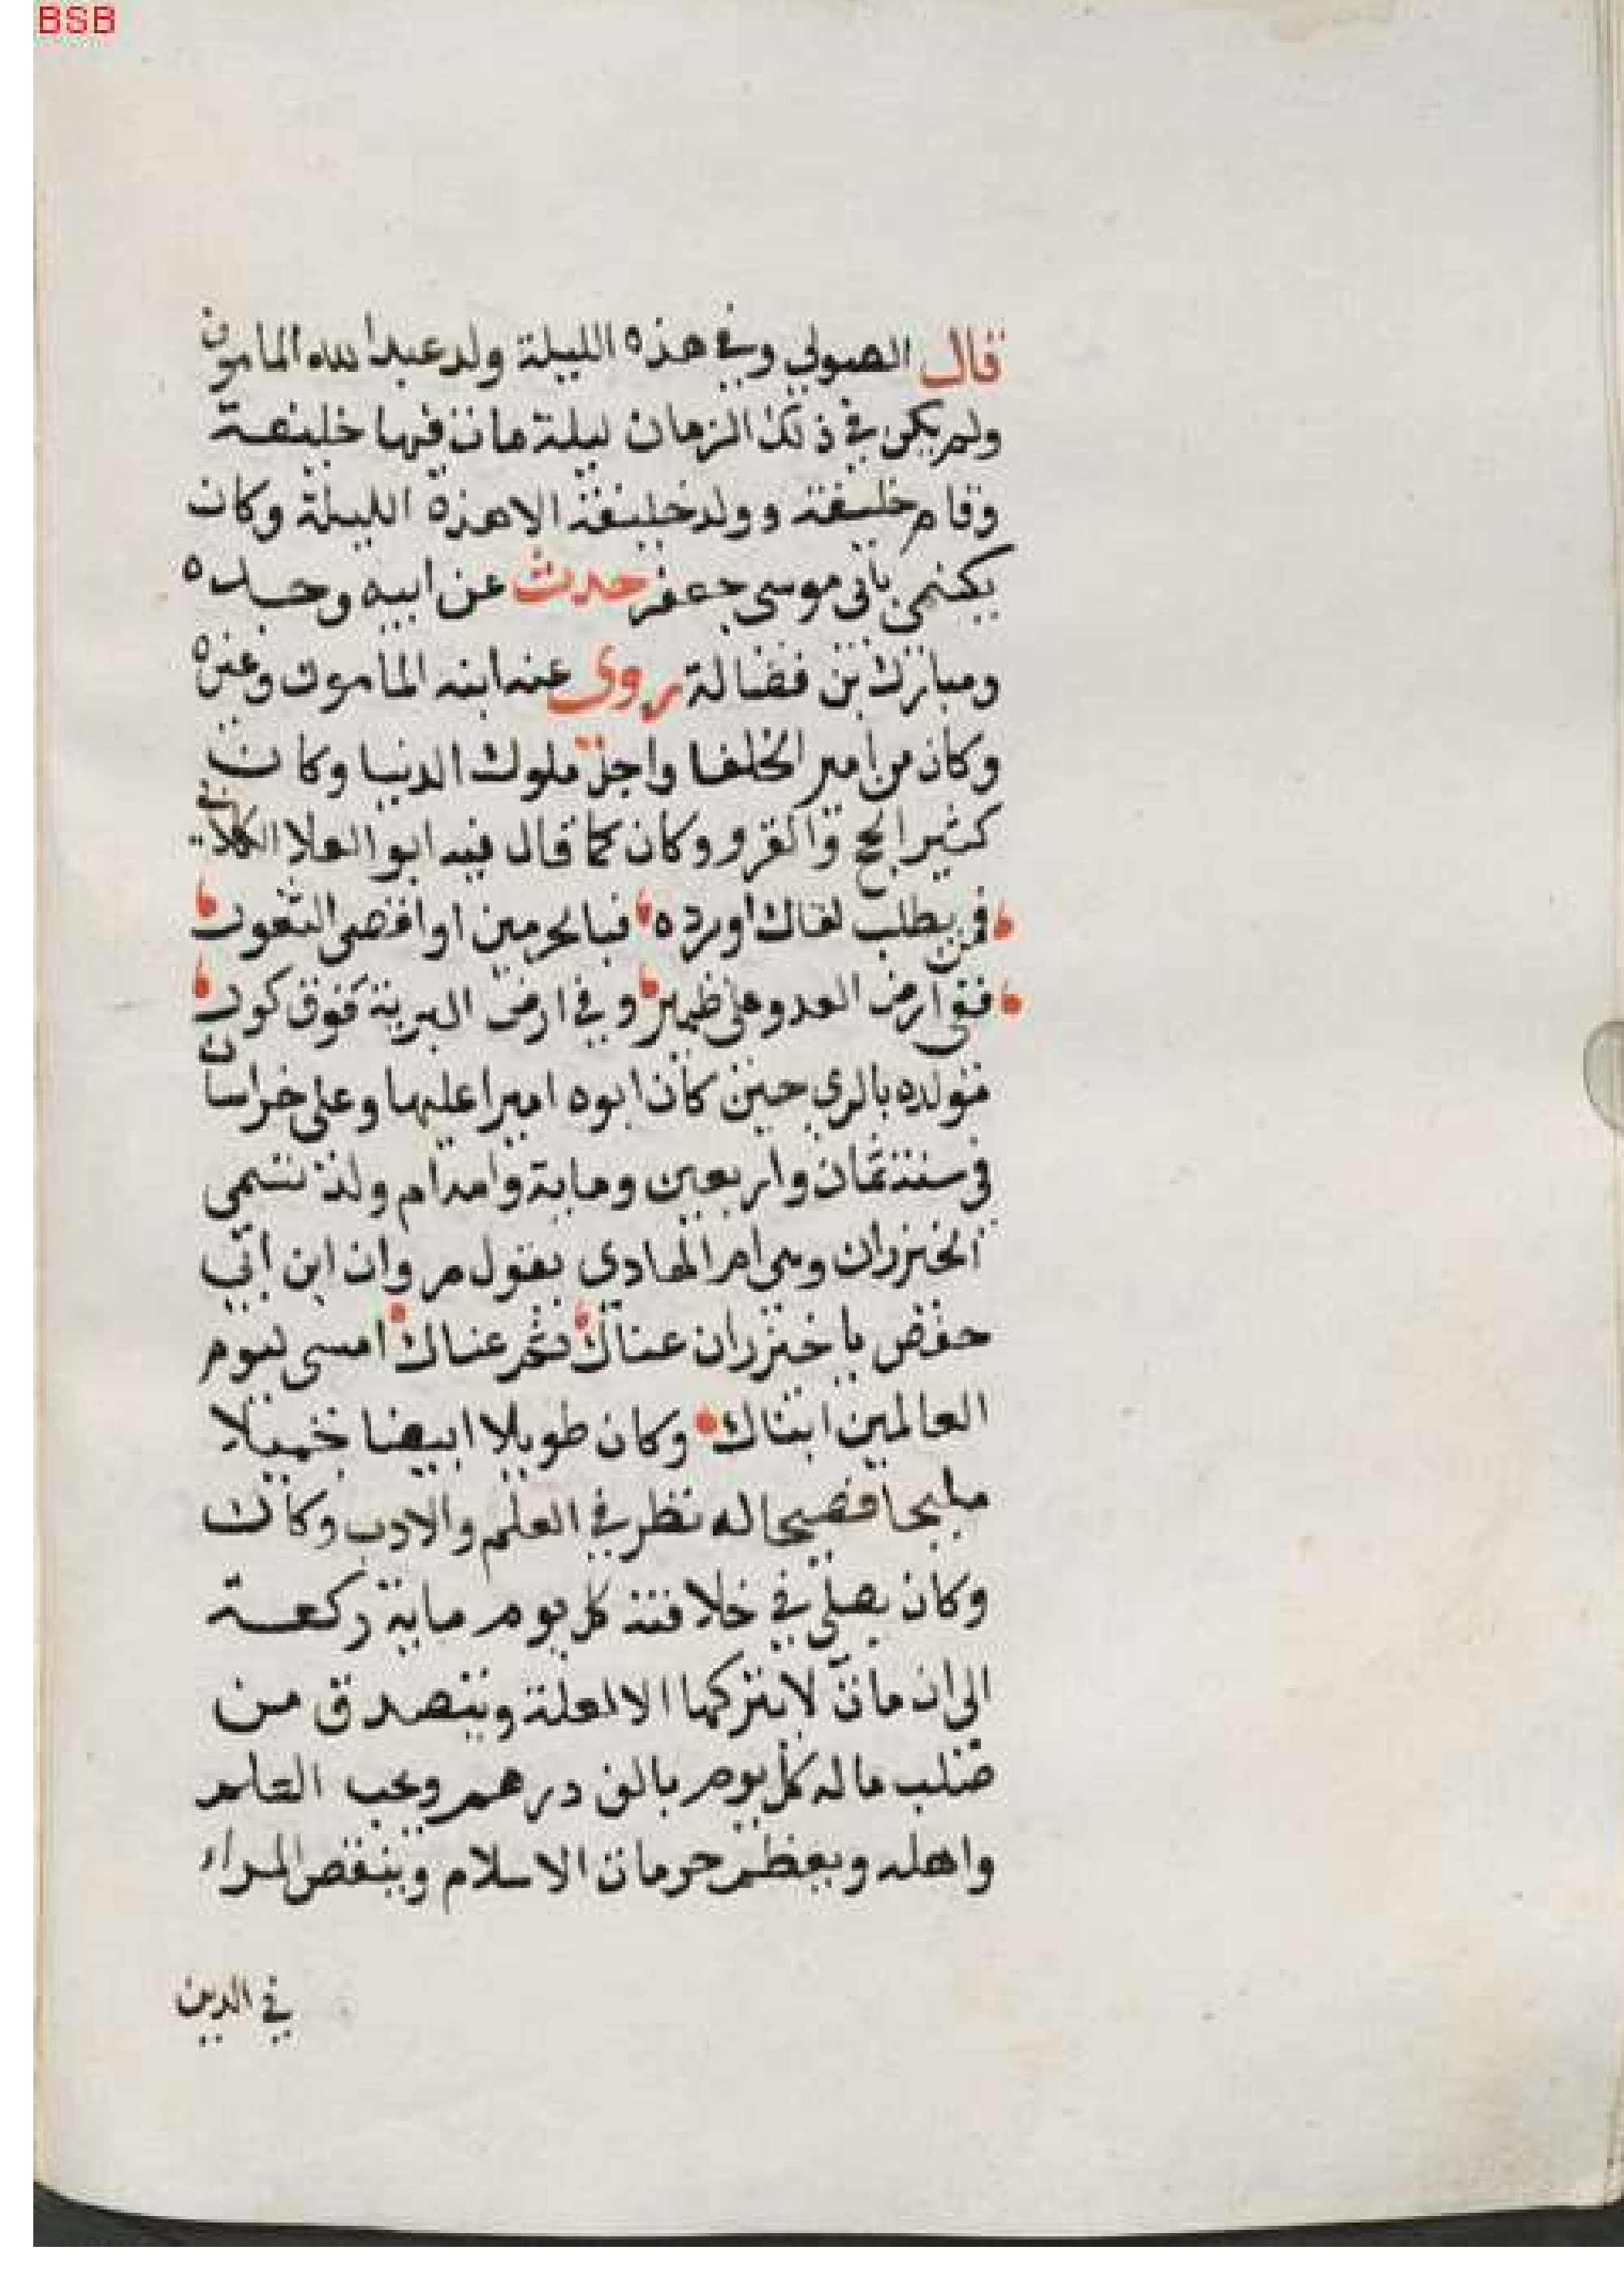 BSB
قال الصولي وفي هذه الليلة ولد عبد الله المامون
ولم يكن في ذلك الزمان ليلة مات فيها خليفة
وقام خليفة وولد خليفة الا هذه الليلة وكان
يكنى بابى موسى جعفر حدث عن ابيه وجده
ومبارك بن فضالة روى عنه ابنه المامون وغيره
وكان من امير الخلفا واجل ملوك الدنيا وكان
كثير الحج والغزو وكان كما قال فيه ابو العلا الكلابي
فمن يطلب لقاك اورده فبالحرمين او اقصى الثغور
ففى ارض العدو على ظمر وفي ارض البرية فوق كور
مولده بالري حين كان ابوه اميرا عليها وعلى خراسان
في سنة ثمان واربعين وماية وامه ام ولد تسمى
الخيزران وهي ام الهادي يقول مروان ابن ابي
حفص يا خيزران عناك ثم عناك امسى ليوم
العالمين ابناك وكان طويلا ابيضا جميلا
مليحا فصيحا له نظر في العلم والادب وكان
وكان يصلي في خلافته كل يوم ماية ركعة
الى ان مات لا يتركها الا لعلة ويتصدق من
صلب ماله كل يوم بالف درهم ويحب العلم
واهله ويعظم حرمات الاسلام وينقص المراء
في الدين